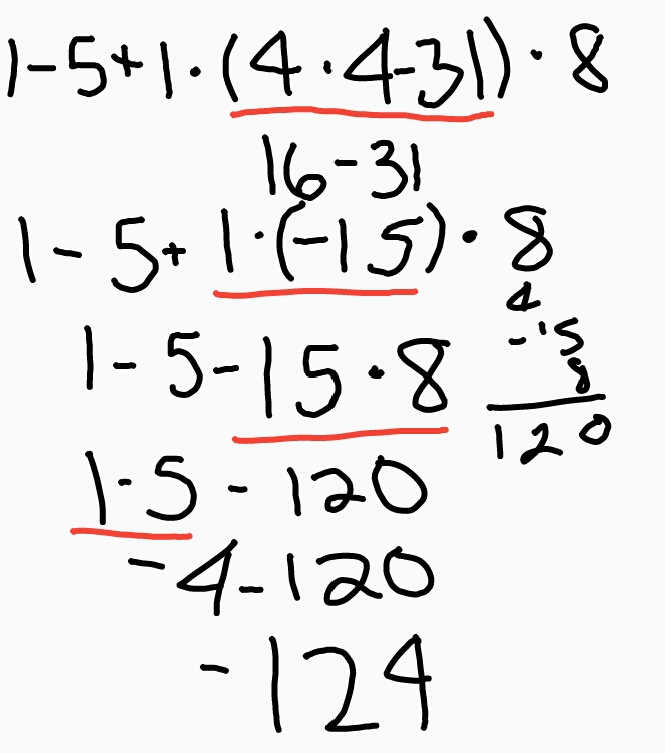 1-5+1·(4·4-31)·8
16-31
1-5+1·(-15)·8
4
-15
8
120
1-5-15·8
1-5-120
-4-120
-124